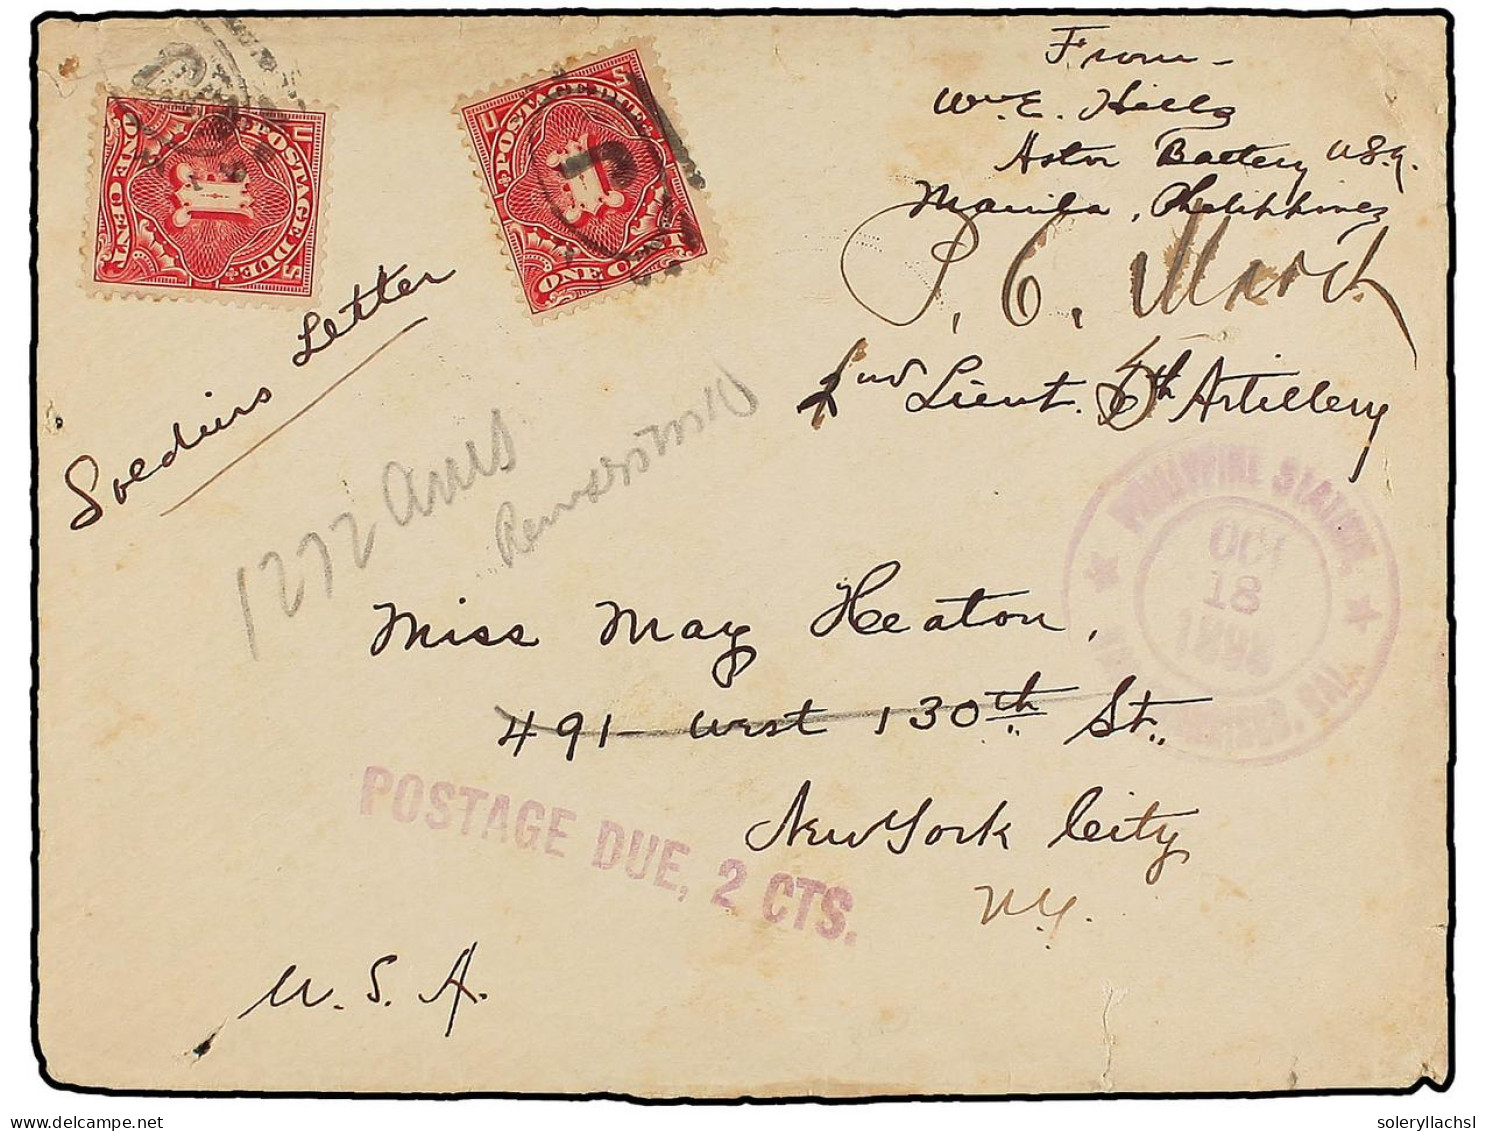 From -
Wm E. Hills
Astor Battery U.S.A.
Manila, Philippines
P. C. March
2nd Lieut. 5th Artillery
U.S. POSTAGE DUE
1
ONE CENT
U.S. POSTAGE DUE
1
ONE CENT
Soldiers Letter
1272
Miss May Heaton,
491 West 130th St.,
New York City
N.Y.
U. S. A.
POSTAGE DUE, 2 CTS.
PHILIPPINE STATION,
OCT
18
1898
SAN FRANCISCO, CAL.
soleryllachsl